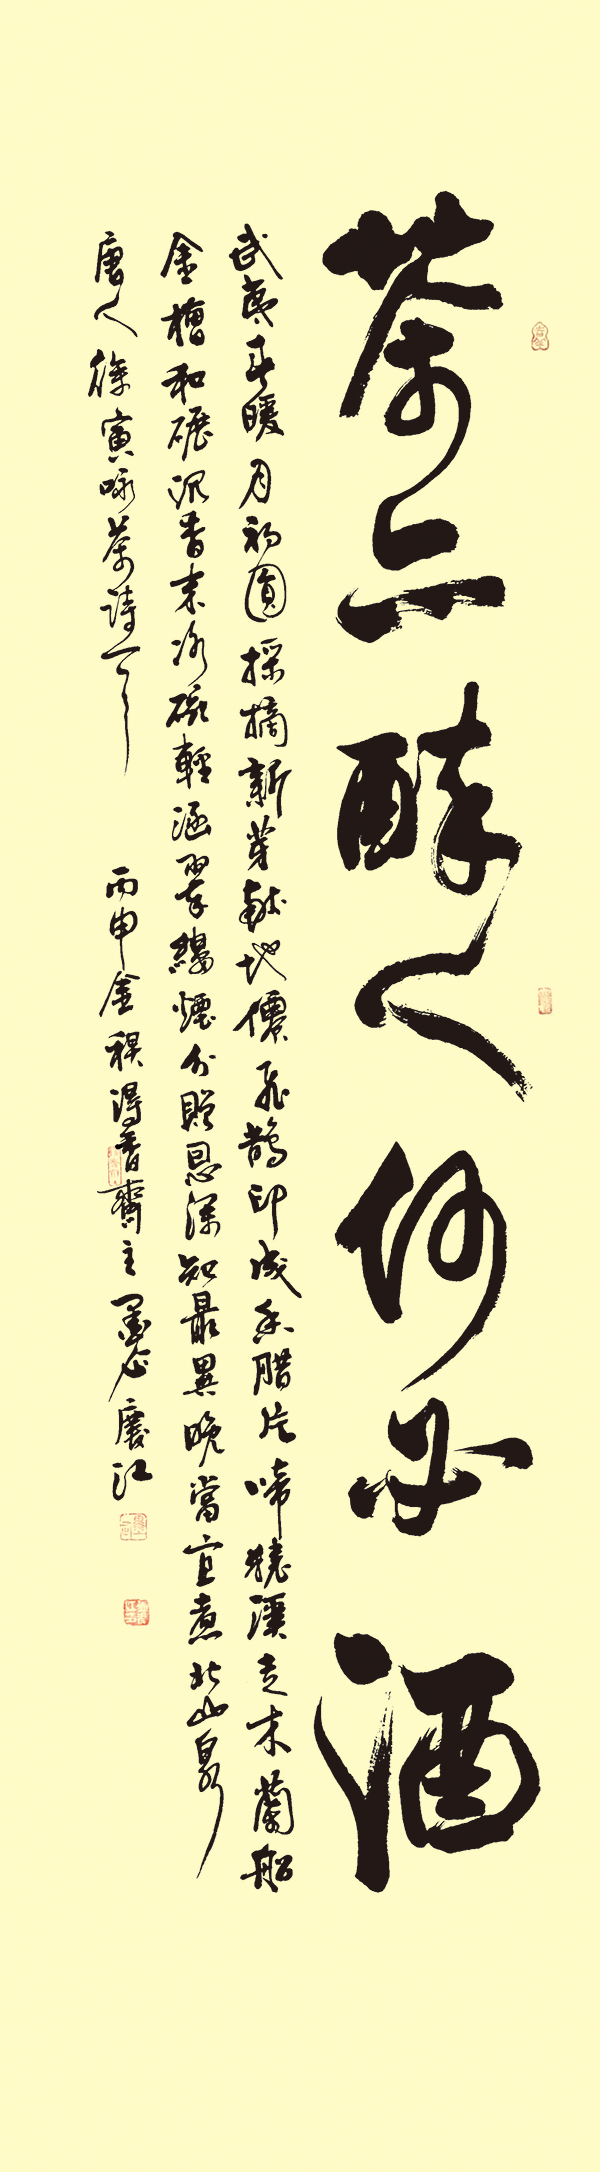 茶亦醉人何必酒
武夷春暖月初圓採摘新芽獻地僊飛鵲印成香腊片啼猿溪走木蘭船
金槽和碾沉香末冰碗輕涵翠縷煙分贈恩深知最異晚當宜煮北山泉
唐人徐寅咏茶詩一首
丙申金秋得香齋主墨心慶江